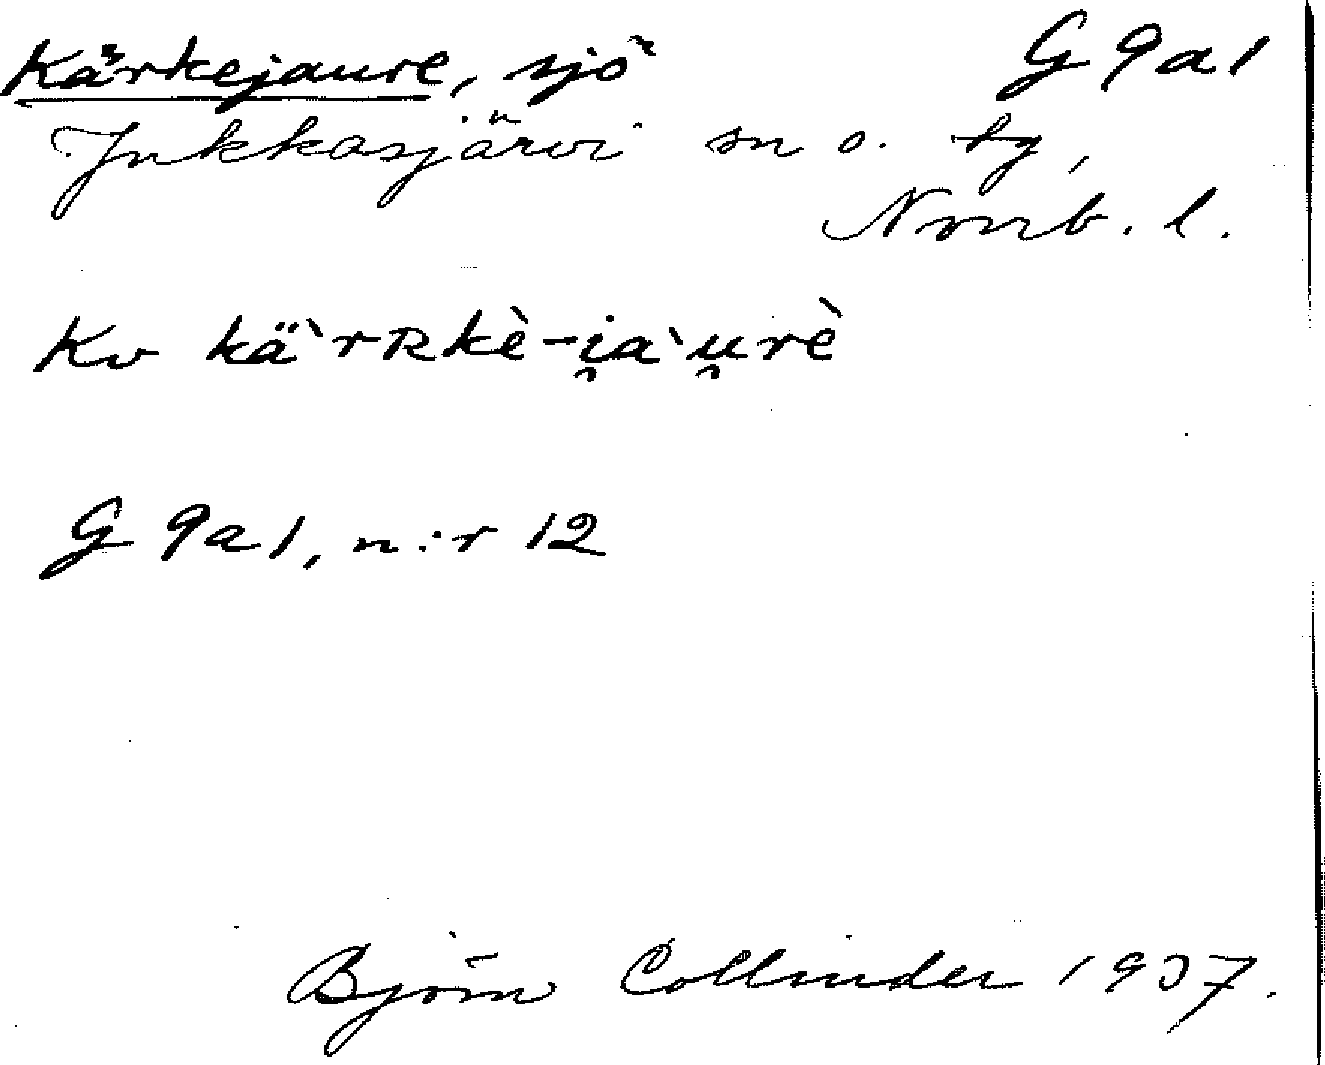 Kärkejaure, sjö G 9a1
Jukkasjärvi sn o. tg,
Nrrb. l.
Kv kä`rRkè-i̯a`u̯rè
G 9a1, n:r 12
Björn Collinder 1937.